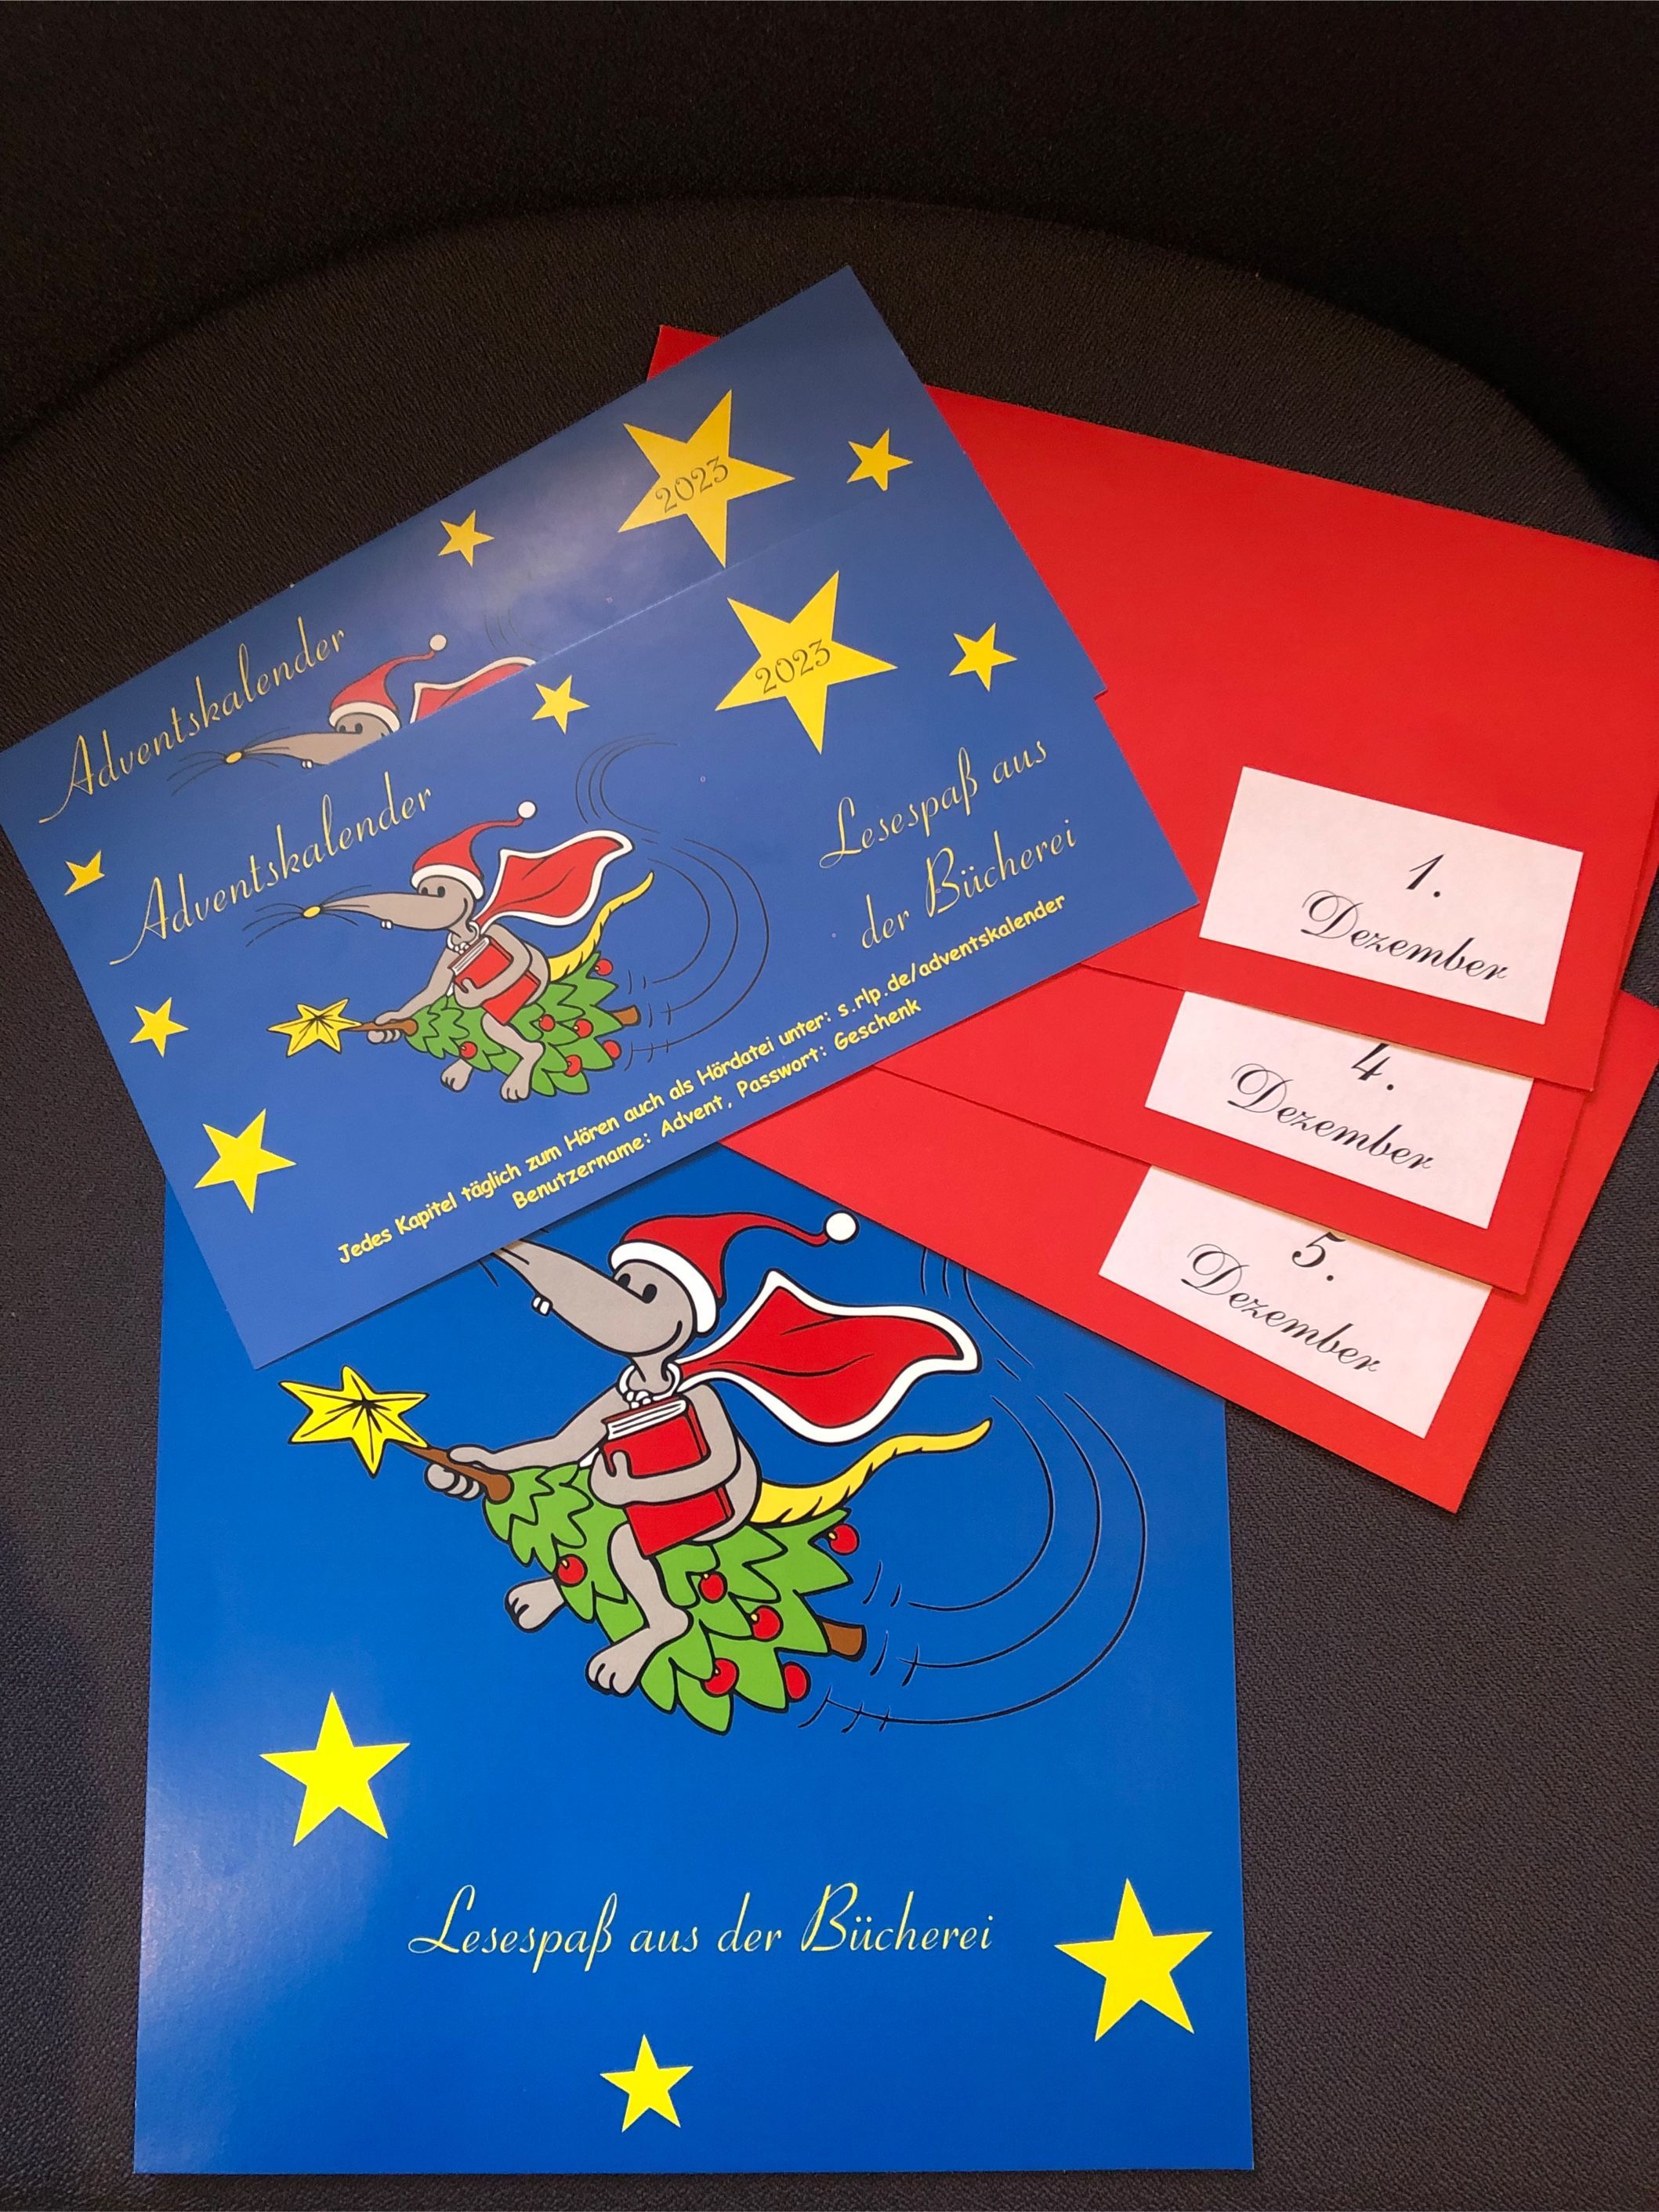 2023
Adventskalender
2023
Adventskalender
Lesespaß aus
der Bücherei
Jedes Kapitel täglich zum Hören auch als Hördatei unter: s.rlp.de/adventskalender
Benutzername: Advent, Passwort: Geschenk
1.
Dezember
4.
Dezember
5.
Dezember
Lesespaß aus der Bücherei